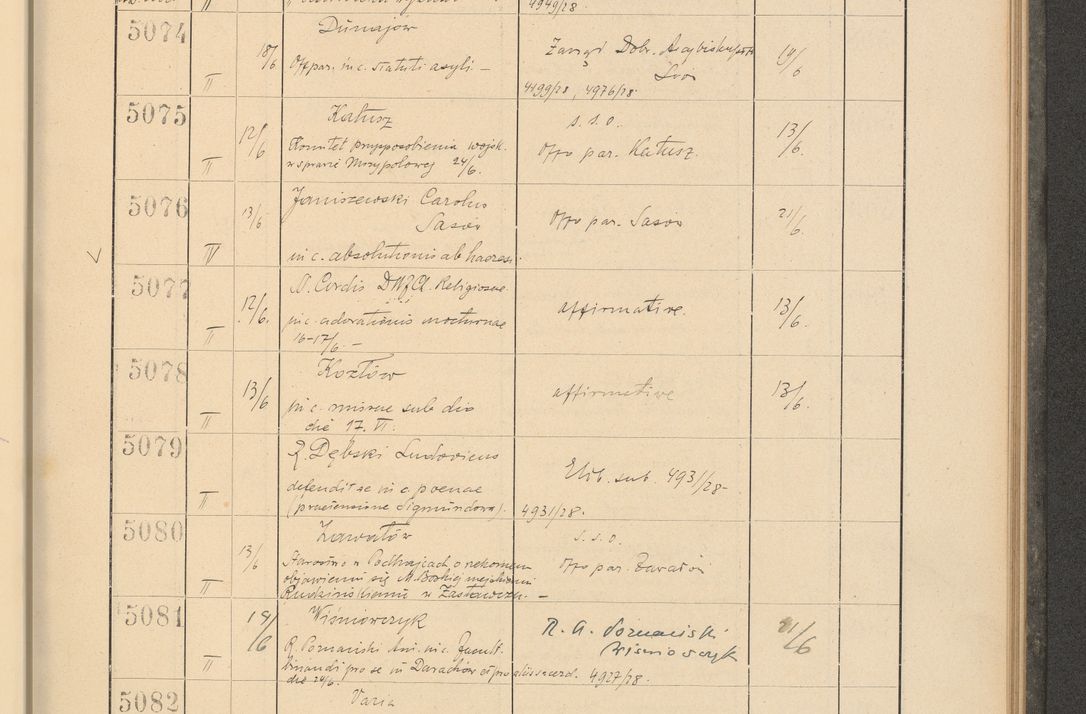 4949/28.
5074
II
18/6
Dunajów
Offpar. in c. statuti asyli. –
Zarząd Dobr.
4199/28, 4976/28.
14/6
5075
II
12/6
Kałusz
Komitet przysposobienia wojsk.
w sprawie Mszy polowej 24/6.
s. s. o.
Offo par. Kałusz.
13/6.
5076
IV
13/6
Janiszewski Carolus
Sasów
in c. absolutionis ab haeresi.
Offo par. Sasów
21/6.
5077
II
12/6.
N. Cordis DNJCh. Religiosae
in c. adorationis nocturnae
16-17/6. –
affirmative.
13/6.
5078
II
13/6
Kozłów
in c. missae sub dio
die 17. VI.
affirmative
13/6.
5079
II
R. Dębski Ludovicus
defendit se in c. poenae
(praetensione Sigmundowa).
Elib. sub. 4931/28-
4931/28.
5080
II
13/6
Zawałów
Starostwo w Podhajcach o rzekomem
objawieniu się M. Boskiej
w Zastawczu. –
s. s. o.
Offo par. Zawałów
5081
II
14/6
Wiśniowczyk
R. Poznański Ant. in c. facult.
binandi pro se in Darachów et pro alio sacerd. 4927/28.
die 24/6.
R. A. Poznański
Wiśniowczyk
21/6
5082
Varia